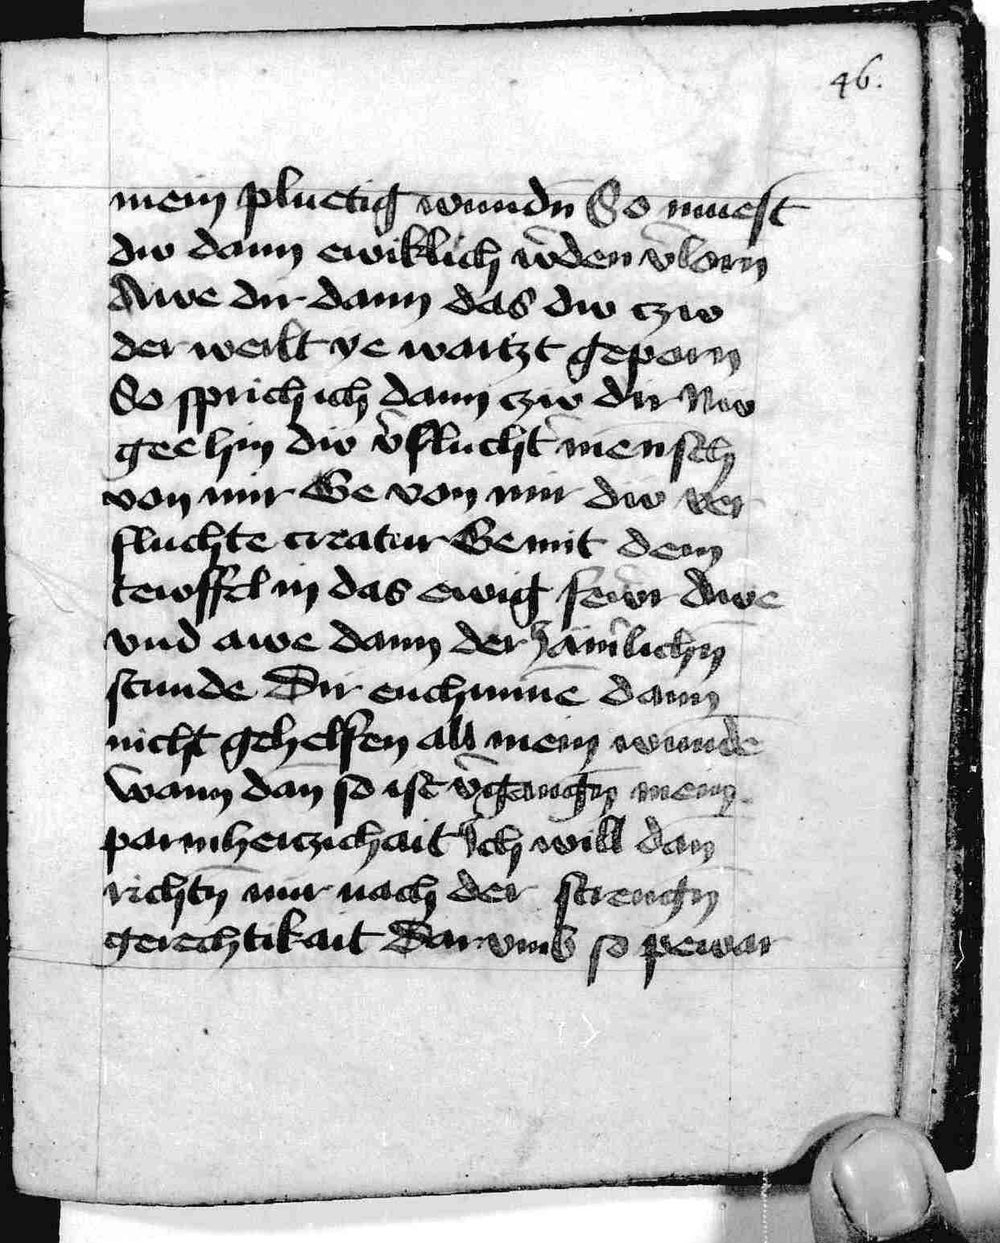 46.
mein pluetig wundn̄ So muest
dw dann ewiklich w̄den v̄lorn
Awe dir dann das dw czw
der werlt ye wartzt geporn
So sprich ich dann czw dir Nw
gee hin dw v̄flucht mensch
von mir Ge von mir dw ver
fluchte creatur Ge mit dem
tewffel in das ewig fewr Awe
vnd awe dann der Jämlichn̄
stunde Dir enchumē dann
nicht gehelfen all mein wundē
wann dan̄ so ist v̄gangn̄ mein
parmherczichait Ich will dan̄
richtn̄ nur nach der strengn̄
gerechtikait Darvmb so pewar